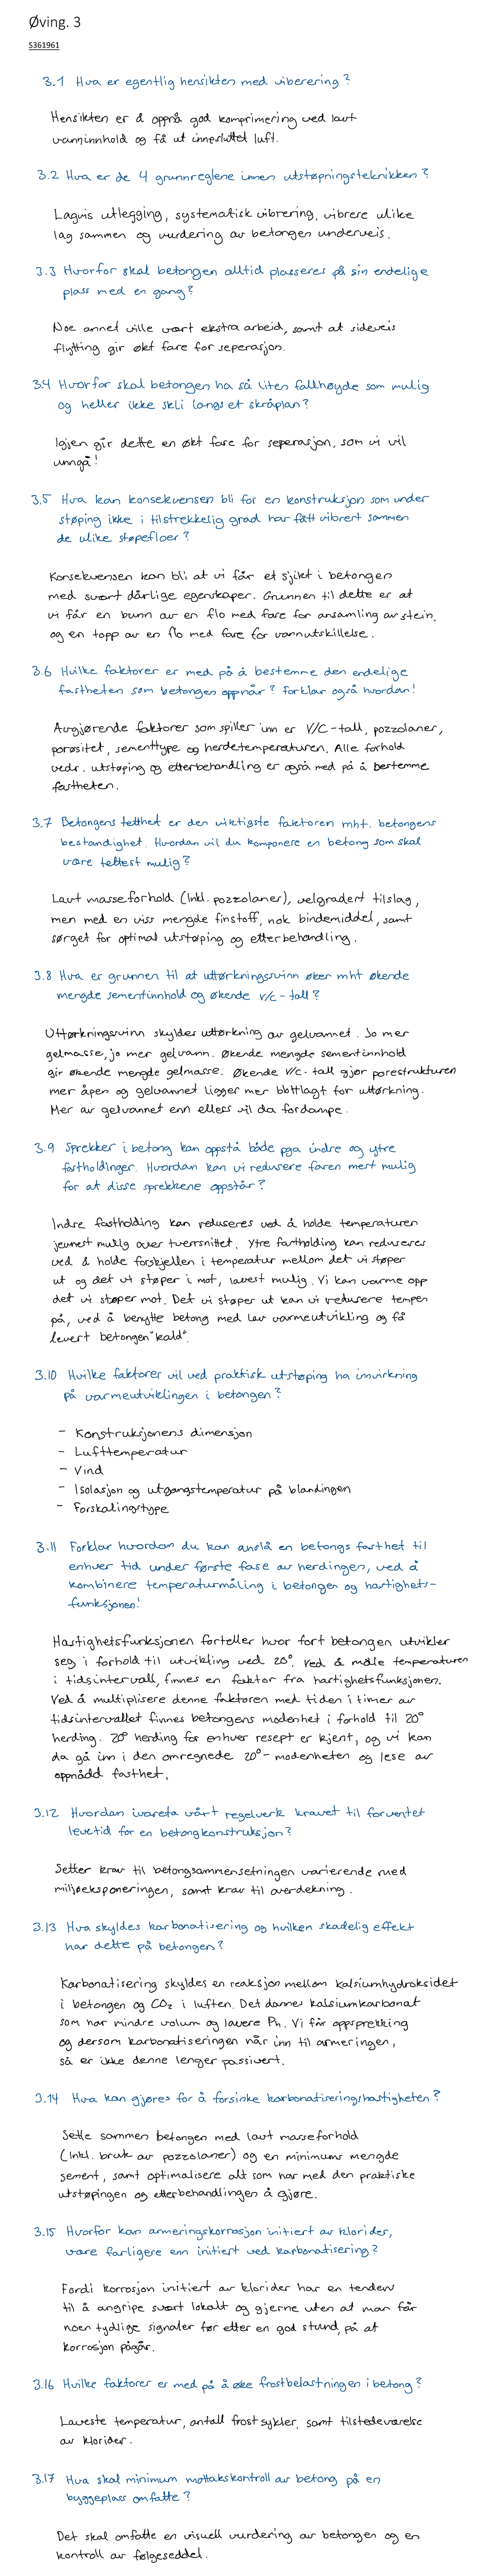 Øving. 3
S361961
3.1 Hva er egentlig hensikten med viberering?
Hensikten er å oppnå god komprimering ved lavt
vanninnhold og få ut innesluttet luft.
3.2 Hva er de 4 grunnreglene innen utstøpningsteknikken?
Lagvis utlegging, systematisk vibrering, vibrere ulike
lag sammen og vurdering av betongen underveis.
3.3 Hvorfor skal betongen alltid plasseres på sin endelige
plass med en gang?
Noe annet ville vært ekstra arbeid, samt at sideveis
flytting gir økt fare for seperasjon.
3.4 Hvorfor skal betongen ha så liten fallhøyde som mulig
og heller ikke skli langs et skråplan?
Igjen gir dette en økt fare for seperasjon, som vi vil
unngå!
3.5 Hva kan konsekvensen bli for en konstruksjon som under
støping ikke i tilstrekkelig grad har fått vibrert sammen
de ulike støpefloer?
Konsekvensen kan bli at vi får et sjikt i betongen
med svært dårlige egenskaper. Grunnen til dette er at
vi får en bunn av en flo med fare for ansamling av stein,
og en topp av en flo med fare for vannutskillelse.
3.6 Hvilke faktorer er med på å bestemme den endelige
fastheten som betongen oppnår? Forklar også hvordan!
Avgjørende faktorer som spiller inn er V/C-tall, pozzolaner,
porøsitet, sementtype og herdetemperaturen. Alle forhold
vedr. utstøping og etterbehandling er også med på å bestemme
fastheten.
3.7 Betongens tetthet er den viktigste faktoren mht. betongens
bestandighet. Hvordan vil du komponere en betong som skal
være tettest mulig?
Lavt masseforhold (Inkl. pozzolaner), velgradert tilslag,
men med en viss mengde finstoff, nok bindemiddel, samt
sørget for optimal utstøping og etterbehandling.
3.8 Hva er grunnen til at uttørkningssvinn øker mht økende
mengde sementinnhold og økende v/c-tall?
Uttørkningssvinn skyldes uttørkning av gelvannet. Jo mer
gelmasse, jo mer gelvann. Økende mengde sementinnhold
gir økende mengde gelmasse. Økende v/c-tall gjør porestrukturen
mer åpen og gelvannet ligger mer blottlagt for uttørkning.
Mer av gelvannet enn ellers vil da fordampe.
3.9 Sprekker i betong kan oppstå både pga indre og ytre
fastholdinger. Hvordan kan vi redusere faren mest mulig
for at disse sprekkene oppstår?
Indre fastholding kan reduseres ved å holde temperaturen
jevnest mulig over tverrsnittet. Ytre fastholding kan reduseres
ved å holde forskjellen i temperatur mellom det vi støper
ut og det vi støper i mot, lavest mulig. Vi kan varme opp
det vi støper mot. Det vi støper ut kan vi redusere tempen
på, ved å benytte betong med lav varmeutvikling og få
levert betongen "kald".
3.10 Hvilke faktorer vil ved praktisk utstøping ha innvirkning
på varmeutviklingen i betongen?
- Konstruksjonens dimensjon
- Lufttemperatur
- Vind
- Isolasjon og utgangstemperatur på blandingen
- Forskalingstype
3.11 Forklar hvordan du kan anslå en betongs fasthet til
enhver tid under første fase av herdingen, ved å
kombinere temperaturmåling i betongen og hastighets-
funksjonen!
Hastighetsfunksjonen forteller hvor fort betongen utvikler
seg i forhold til utvikling ved 20°. Ved å måle temperaturen
i tidsintervall, finnes en faktor fra hastighetsfunksjonen.
Ved å multiplisere denne faktoren med tiden i timer av
tidsintervallet finnes betongens modenhet i forhold til 20°
herding. 20° herding for enhver resept er kjent, og vi kan
da gå inn i den omregnede 20°-modenheten og lese av
oppnådd fasthet.
3.12 Hvordan ivareta vårt regelverk kravet til forventet
levetid for en betongkonstruksjon?
Setter krav til betongsammensetningen varierende med
miljøeksponeringen, samt krav til overdekning.
3.13 Hva skyldes karbonatisering og hvilken skadelig effekt
har dette på betongen?
Karbonatisering skyldes en reaksjon mellom kalsiumhydroksidet
i betongen og CO₂ i luften. Det dannes kalsiumkarbonat
som har mindre volum og lavere Ph. Vi får oppsprekking
og dersom karbonatiseringen når inn til armeringen,
så er ikke denne lenger passivert.
3.14 Hva kan gjøres for å forsinke karbonatiseringshastigheten?
Sette sammen betongen med lavt masseforhold
(Inkl. bruk av pozzolaner) og en minimums mengde
sement, samt optimalisere alt som har med den praktiske
utstøpingen og etterbehandlingen å gjøre.
3.15 Hvorfor kan armeringskorrosjon initiert av klorider,
være farligere enn initiert ved karbonatisering?
Fordi korrosjon initiert av klorider har en tendens
til å angripe svært lokalt og gjerne uten at man får
noen tydlige signaler før etter en god stund, på at
korrosjon pågår.
3.16 Hvilke faktorer er med på å øke frostbelastningen i betong?
Laveste temperatur, antall frost sykler, samt tilstedeværelse
av klorider.
3.17 Hva skal minimum mottakskontroll av betong på en
byggeplass omfatte?
Det skal omfatte en visuell vurdering av betongen og en
kontroll av følgeseddel.